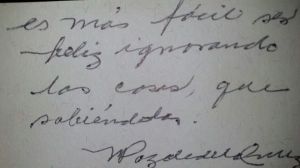 es más fácil ser
feliz ignorando
las cosas, que
sabiéndolas.